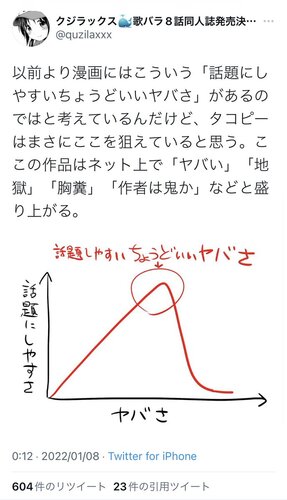 クジラックス🐳歌バラ8話同人誌発売決…
@quzilaxxx
以前より漫画にはこういう「話題にし
やすいちょうどいいヤバさ」があるの
ではと考えているんだけど、タコピー
はまさにここを狙えていると思う。こ
この作品はネット上で「ヤバい」「地
獄」「胸糞」「作者は鬼か」などと盛
り上がる。
話題しやすいちょうどいいヤバさ
話題にしやすさ
ヤバさ
0:12 · 2022/01/08 · Twitter for iPhone
604 件のリツイート 23 件の引用ツイート